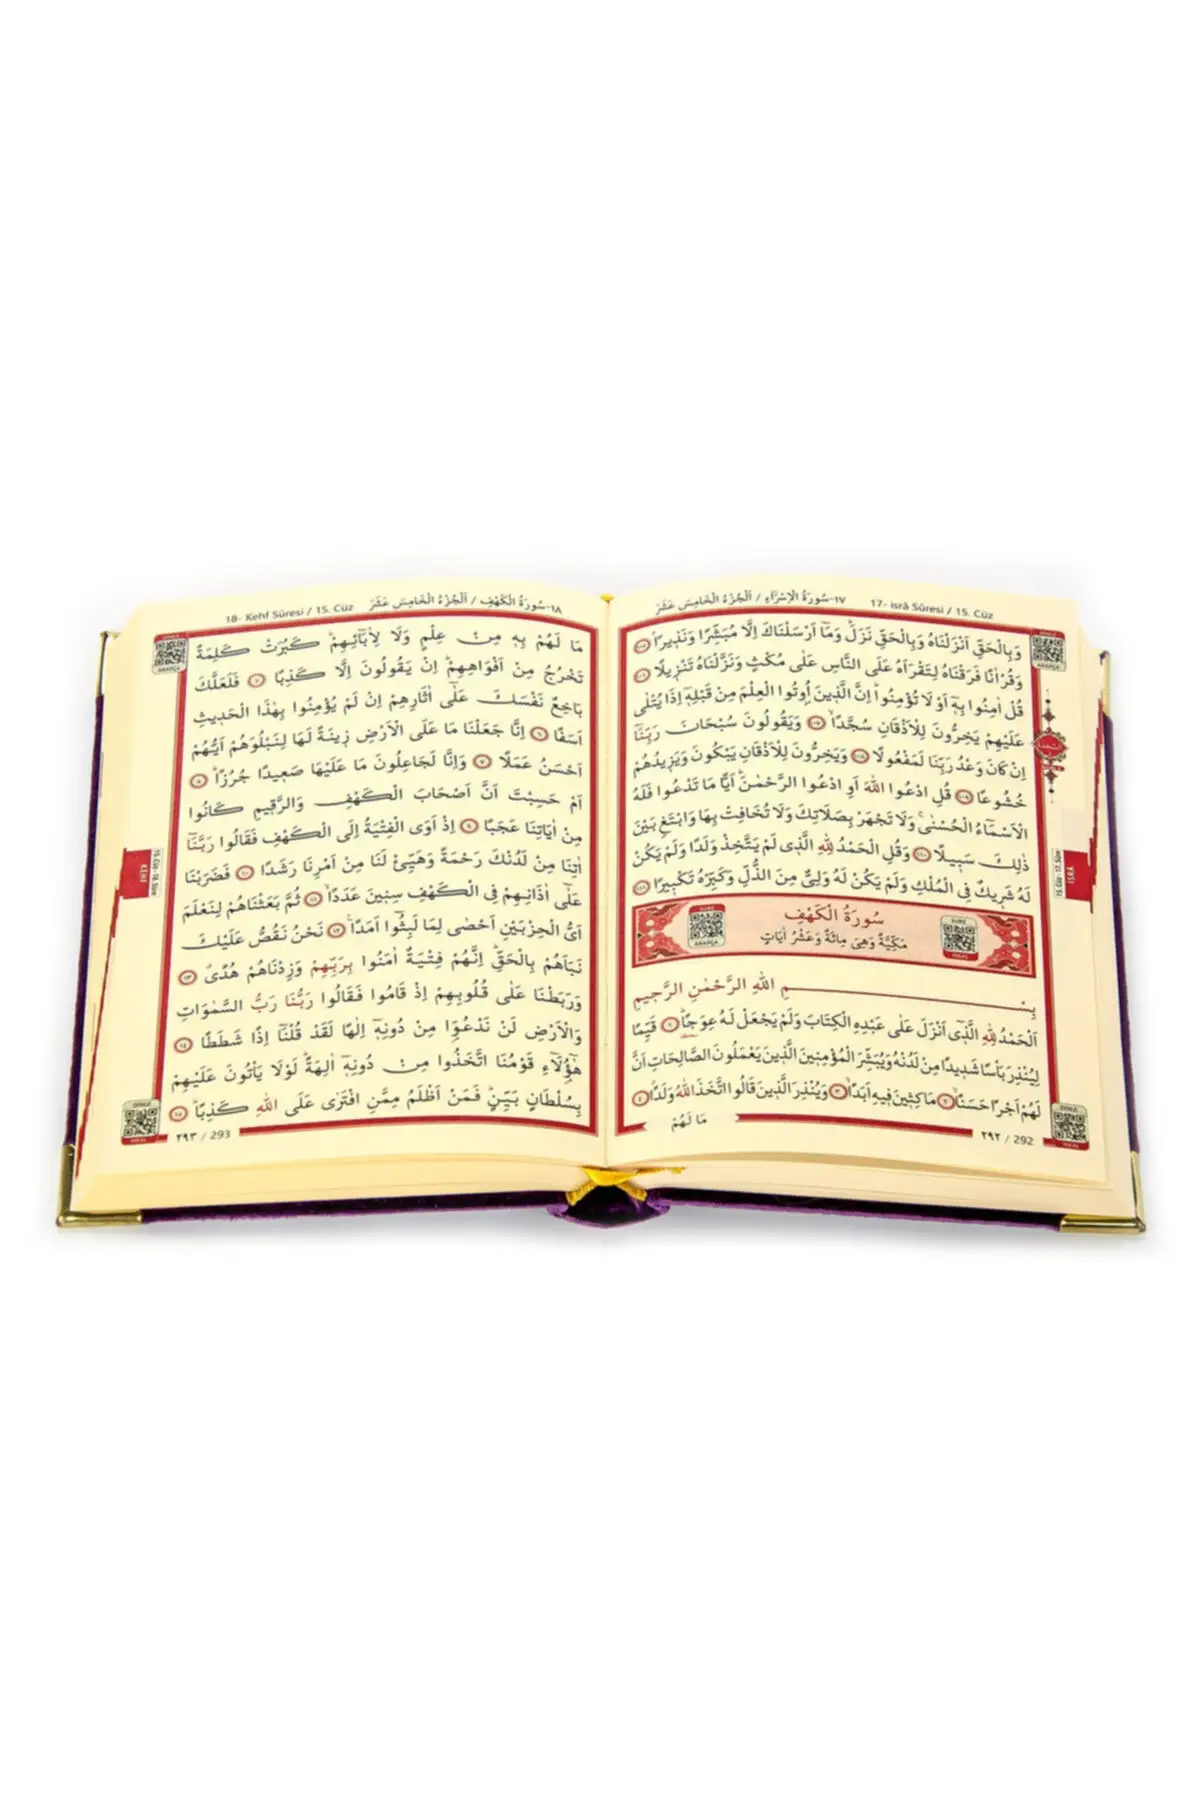 ١٧-سُورَةُ الْاِسْرَاءِ / اَلْجُزْءُ الْخَامِسَ عَشَرَ 17- isrâ Sûresi / 15. Cüz
وَبِالْحَقِّ اَنْزَلْنَاهُ وَبِالْحَقِّ نَزَلَۜ وَمَٓا اَرْسَلْنَاكَ اِلَّا مُبَشِّرًا وَنَذ۪يرًاۢ ﴿١٠٥﴾
وَقُرْاٰنًا فَرَقْنَاهُ لِتَقْرَاَهُ عَلَى النَّاسِ عَلٰى مُكْثٍ وَنَزَّلْنَاهُ تَنْز۪يلًا ﴿١٠٦﴾
قُلْ اٰمِنُوا بِه۪ٓ اَوْ لَا تُؤْمِنُواۜ اِنَّ الَّذ۪ينَ اُو۫تُوا الْعِلْمَ مِنْ قَبْلِه۪ٓ اِذَا يُتْلٰى
عَلَيْهِمْ يَخِرُّونَ لِلْاَذْقَانِ سُجَّدًاۙ ﴿١٠٧﴾ وَيَقُولُونَ سُبْحَانَ رَبِّنَٓا
اِنْ كَانَ وَعْدُ رَبِّنَا لَمَفْعُولًا ﴿١٠٨﴾ وَيَخِرُّونَ لِلْاَذْقَانِ يَبْكُونَ وَيَز۪يدُهُمْ
خُشُوعًا ﴿١٠٩﴾ قُلِ ادْعُوا اللّٰهَ اَوِ ادْعُوا الرَّحْمٰنَۜ اَيًّا مَا تَدْعُوا فَلَهُ
الْاَسْمَٓاءُ الْحُسْنٰىۚ وَلَا تَجْهَرْ بِصَلَاتِكَ وَلَا تُخَافِتْ بِهَا وَابْتَغِ بَيْنَ
ذٰلِكَ سَب۪يلًا ﴿١١٠﴾ وَقُلِ الْحَمْدُ لِلّٰهِ الَّذ۪ي لَمْ يَتَّخِذْ وَلَدًا وَلَمْ يَكُنْ
لَهُ شَر۪يكٌ فِي الْمُلْكِ وَلَمْ يَكُنْ لَهُ وَلِيٌّ مِنَ الذُّلِّ وَكَبِّرْهُ تَكْب۪يرًا ﴿١١١﴾
سُورَةُ الْكَهْفِ
مَكِّيَّةٌ وَهِيَ مِائَةٌ وَعَشْرُ اٰيَاتٍ
بِسْــــــــــمِ اللّٰهِ الرَّحْمٰنِ الرَّح۪يمِ
اَلْحَمْدُ لِلّٰهِ الَّذ۪ٓي اَنْزَلَ عَلٰى عَبْدِهِ الْكِتَابَ وَلَمْ يَجْعَلْ لَهُ عِوَجًاۜ ﴿١﴾ قَيِّمًا
لِيُنْذِرَ بَاْسًا شَد۪يدًا مِنْ لَدُنْهُ وَيُبَشِّرَ الْمُؤْمِن۪ينَ الَّذ۪ينَ يَعْمَلُونَ الصَّالِحَاتِ اَنَّ
لَهُمْ اَجْرًا حَسَنًاۙ ﴿٢﴾ مَاكِث۪ينَ ف۪يهِ اَبَدًاۙ ﴿٣﴾ وَيُنْذِرَ الَّذ۪ينَ قَالُوا اتَّخَذَ اللّٰهُ وَلَدًاۗ ﴿٤﴾
مَا لَهُمْ
٢٩٢ / 292
15. Cüz - 17. Sûre
İSRÂ
18- Kehf Sûresi / 15. Cüz ١٨-سُورَةُ الْكَهْفِ / اَلْجُزْءُ الْخَامِسَ عَشَرَ
مَا لَهُمْ بِه۪ مِنْ عِلْمٍ وَلَا لِاٰبَٓائِهِمْۜ كَبُرَتْ كَلِمَةً
تَخْرُجُ مِنْ اَفْوَاهِهِمْۜ اِنْ يَقُولُونَ اِلَّا كَذِبًا ﴿٥﴾ فَلَعَلَّكَ
بَاخِعٌ نَفْسَكَ عَلٰٓى اٰثَارِهِمْ اِنْ لَمْ يُؤْمِنُوا بِهٰذَا الْحَد۪يثِ
اَسَفًا ﴿٦﴾ اِنَّا جَعَلْنَا مَا عَلَى الْاَرْضِ ز۪ينَةً لَهَا لِنَبْلُوَهُمْ اَيُّهُمْ
اَحْسَنُ عَمَلًا ﴿٧﴾ وَاِنَّا لَجَاعِلُونَ مَا عَلَيْهَا صَع۪يدًا جُرُزًاۜ ﴿٨﴾
اَمْ حَسِبْتَ اَنَّ اَصْحَابَ الْكَهْفِ وَالرَّق۪يمِ كَانُوا
مِنْ اٰيَاتِنَا عَجَبًا ﴿٩﴾ اِذْ اَوَى الْفِتْيَةُ اِلَى الْكَهْفِ فَقَالُوا رَبَّنَٓا
اٰتِنَا مِنْ لَدُنْكَ رَحْمَةً وَهَيِّئْ لَنَا مِنْ اَمْرِنَا رَشَدًا ﴿١٠﴾ فَضَرَبْنَا
عَلٰٓى اٰذَانِهِمْ فِي الْكَهْفِ سِن۪ينَ عَدَدًاۙ ﴿١١﴾ ثُمَّ بَعَثْنَاهُمْ لِنَعْلَمَ
اَيُّ الْحِزْبَيْنِ اَحْصٰى لِمَا لَبِثُٓوا اَمَدًا۟ ﴿١٢﴾ نَحْنُ نَقُصُّ عَلَيْكَ
نَبَاَهُمْ بِالْحَقِّۜ اِنَّهُمْ فِتْيَةٌ اٰمَنُوا بِرَبِّهِمْ وَزِدْنَاهُمْ هُدًىۗ ﴿١٣﴾
وَرَبَطْنَا عَلٰى قُلُوبِهِمْ اِذْ قَامُوا فَقَالُوا رَبُّنَا رَبُّ السَّمٰوَاتِ
وَالْاَرْضِ لَنْ نَدْعُوَ۬ا مِنْ دُونِه۪ٓ اِلٰهًا لَقَدْ قُلْنَٓا اِذًا شَطَطًا ﴿١٤﴾
هٰٓؤُ۬لَٓاءِ قَوْمُنَا اتَّخَذُوا مِنْ دُونِه۪ٓ اٰلِهَةًۜ لَوْلَا يَاْتُونَ عَلَيْهِمْ
بِسُلْطَانٍ بَيِّنٍۜ فَمَنْ اَظْلَمُ مِمَّنِ افْتَرٰى عَلَى اللّٰهِ كَذِبًاۜ ﴿١٥﴾
٢٩٣ / 293
15. Cüz - 18. Sûre
KEHF